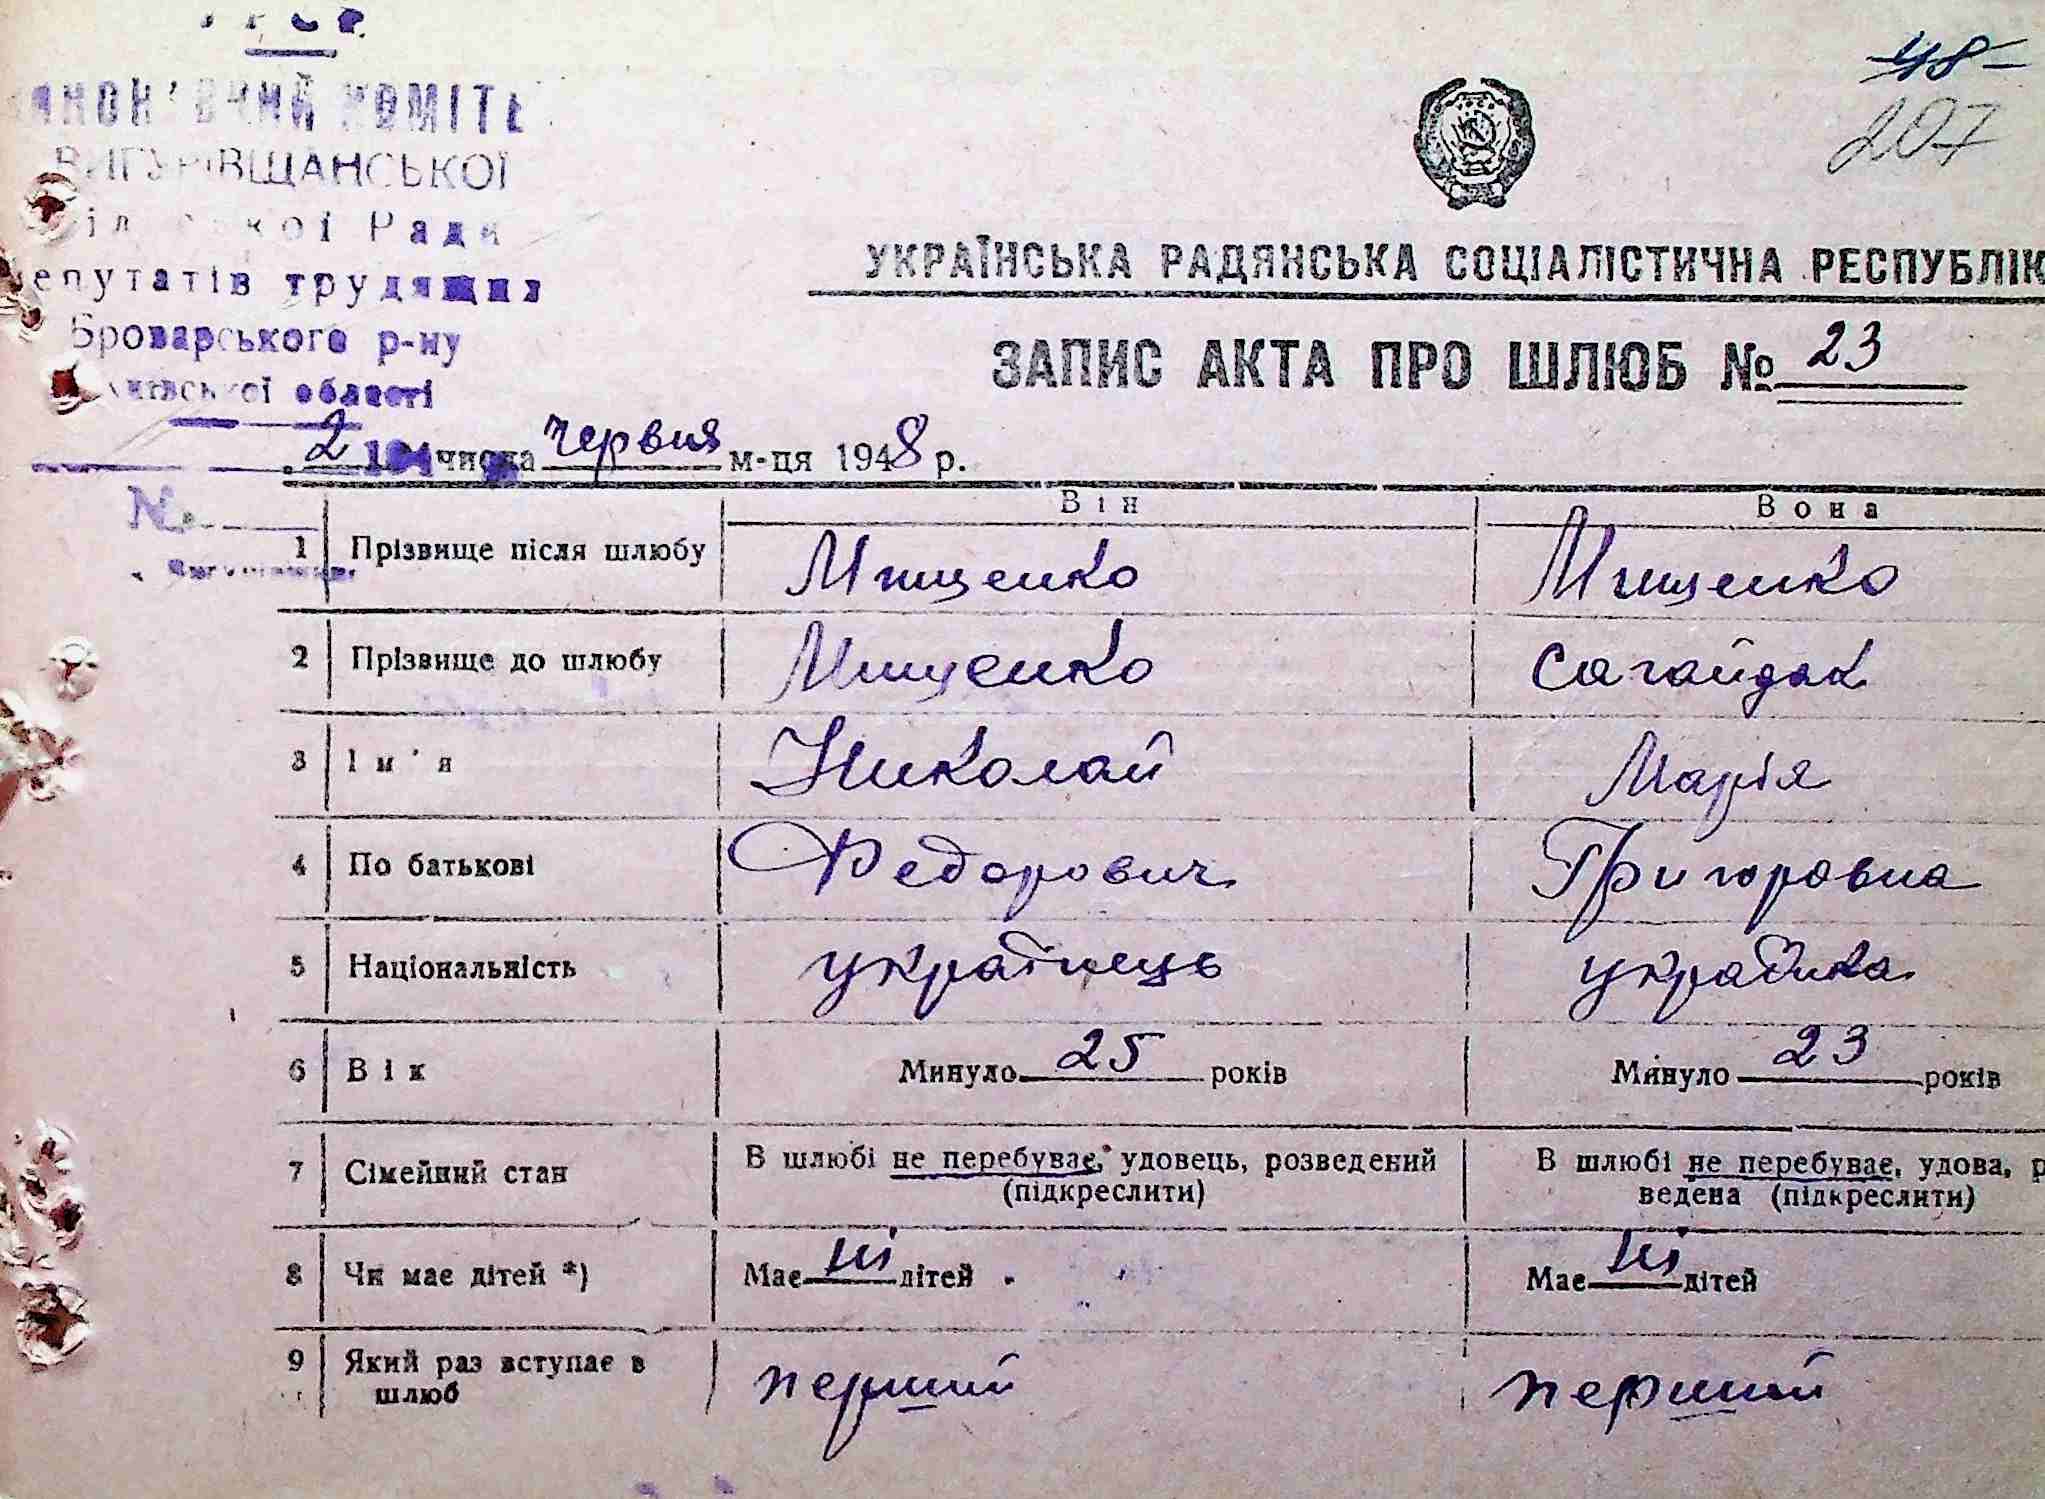 УРСР
ВИКОНАВЧИЙ КОМІТЕ
ВИГУРІВЩАНСЬКОЇ
сільської Ради
депутатів трудящих
Броварського р-ну
Київської області
48
207
УКРАЇНСЬКА РАДЯНСЬКА СОЦІАЛІСТИЧНА РЕСПУБЛІК
ЗАПИС АКТА ПРО ШЛЮБ № 23
2 числа червня м-ця 1948 р.
№
Він Вона
1 Прізвище після шлюбу Мищенко Мищенко
2 Прізвище до шлюбу Мищенко Сагайдак
3 Ім'я Николай Марія
4 По батькові Федорович Григоровна
5 Національність українець українка
6 Вік Минуло 25 років Минуло 23 років
7 Сімейний стан В шлюбі не перебуває, удовець, розведений (підкреслити) В шлюбі не перебуває, удова, р
ведена (підкреслити)
8 Чи має дітей *) Має ні дітей Має ні дітей
9 Який раз вступає в шлюб перший перший